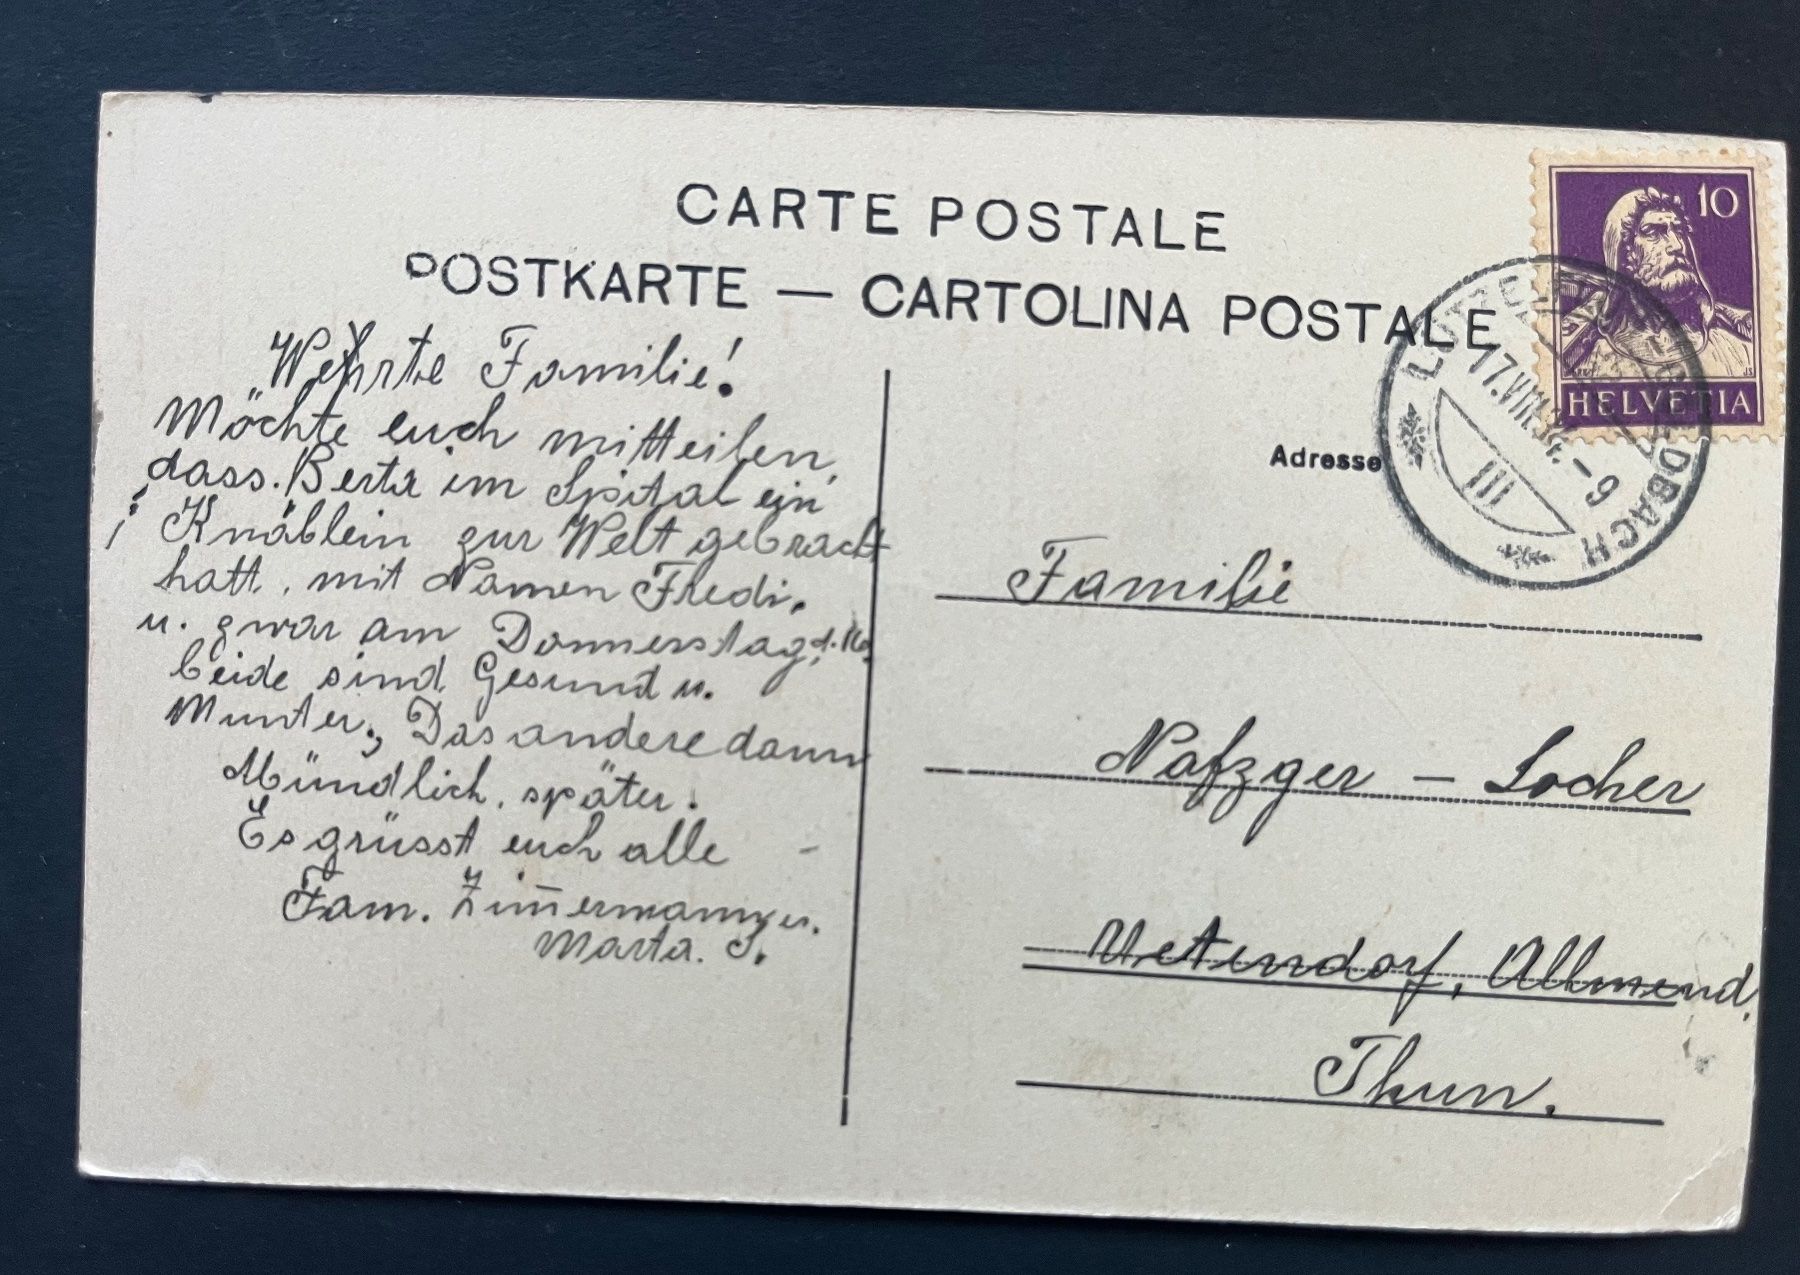 CARTE POSTALE
POSTKARTE — CARTOLINA POSTALE
Wehrte Familie!
Möchte euch mitteilen,
dass. Berta im Spital ein
Knäblein zur Welt gebracht
hatt, mit Namen Fredi,
u. zwar am Donnerstag, d. 16.
beide sind Gesund u.
Munter, Das andere dann
Mündlich, später.
Es grüsst euch alle -
Fam. Zim̅ermann
Marta. S.
10
HELVETIA
17.VIII. - 6
III
Adresse
Familie
Nafzger - Locher
Uetendorf, Allmend,
Thun.